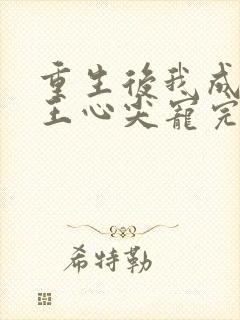 重生後我成
王心尖寵完
希特勒